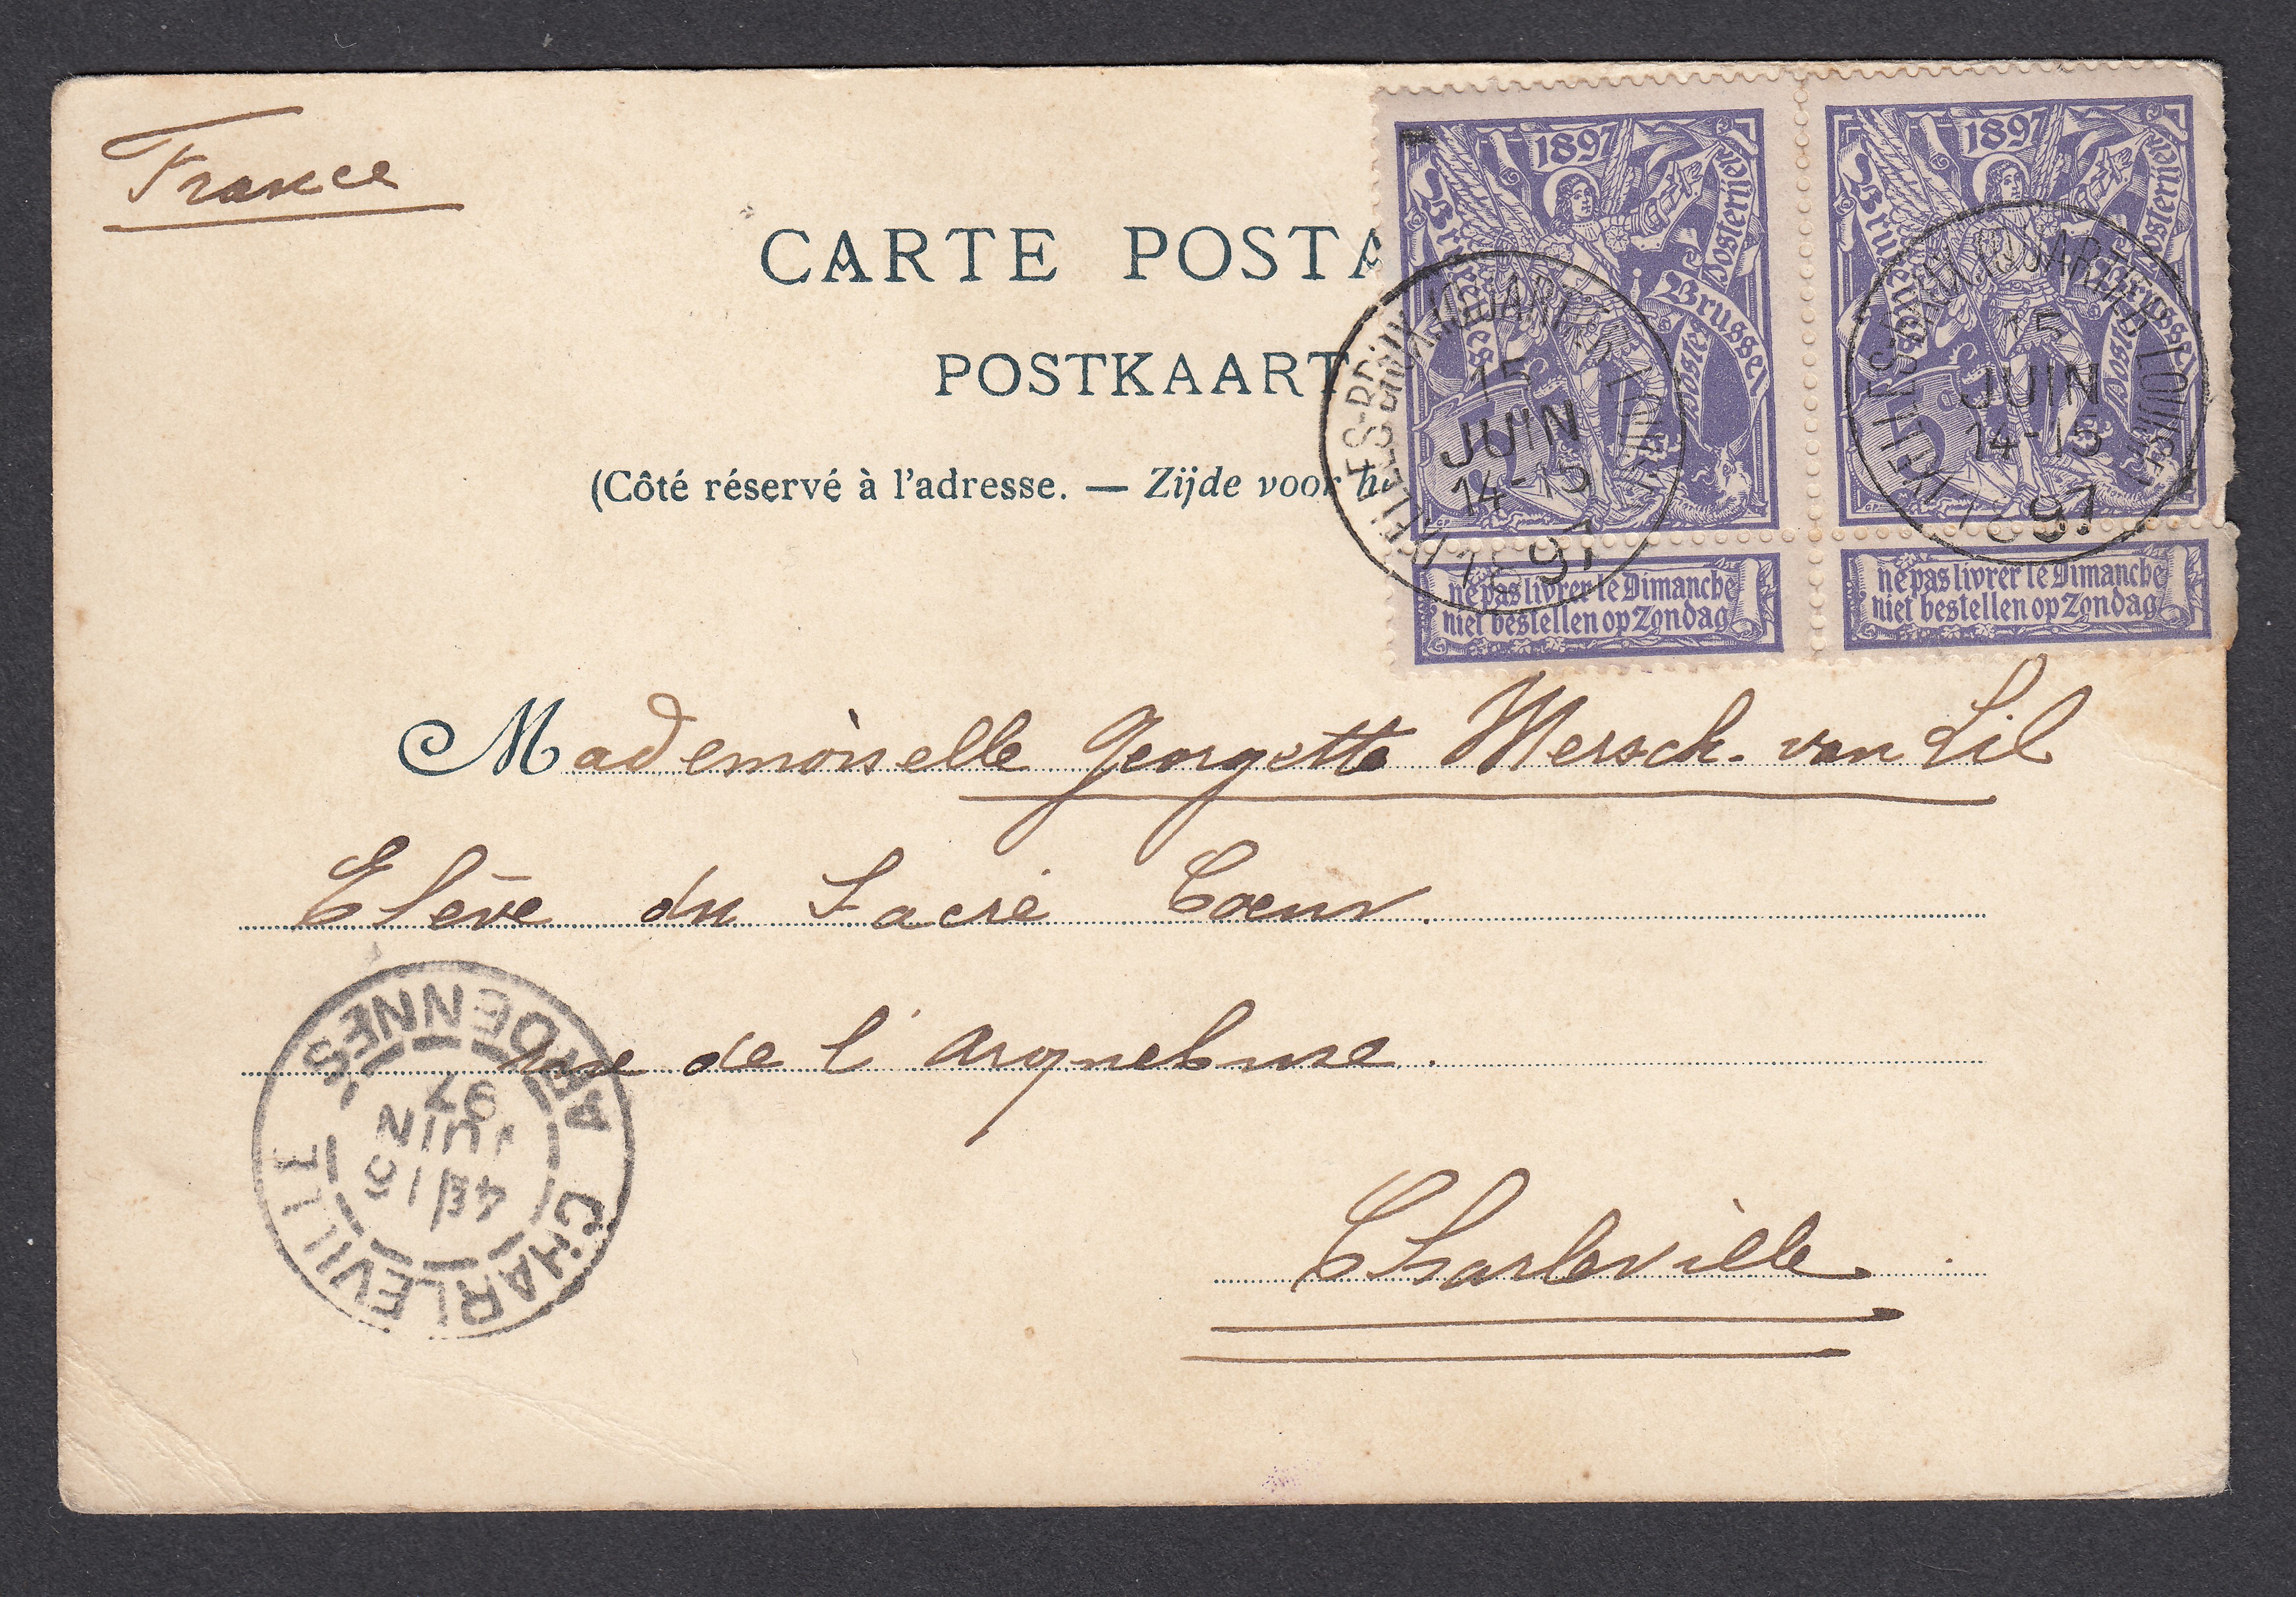 France
CARTE POSTA
POSTKAART
(Côté réservé à l'adresse. — Zijde voor h
1897
Bruxelles
Postes
Brussel
Posterijen
5
ne pas livrer le Dimanche
niet bestellen op Zondag
1897
Bruxelles
Postes
Brussel
Posterijen
5
ne pas livrer le Dimanche
niet bestellen op Zondag
15
JUIN
14-15
1897
15
JUIN
14-15
1897
Mademoiselle Georgette Mersch-van Lil
Elève du Sacré Coeur.
rue de l'arquebuse.
Charleville
CHARLEVILLE
ARDENNES
JUIN
97